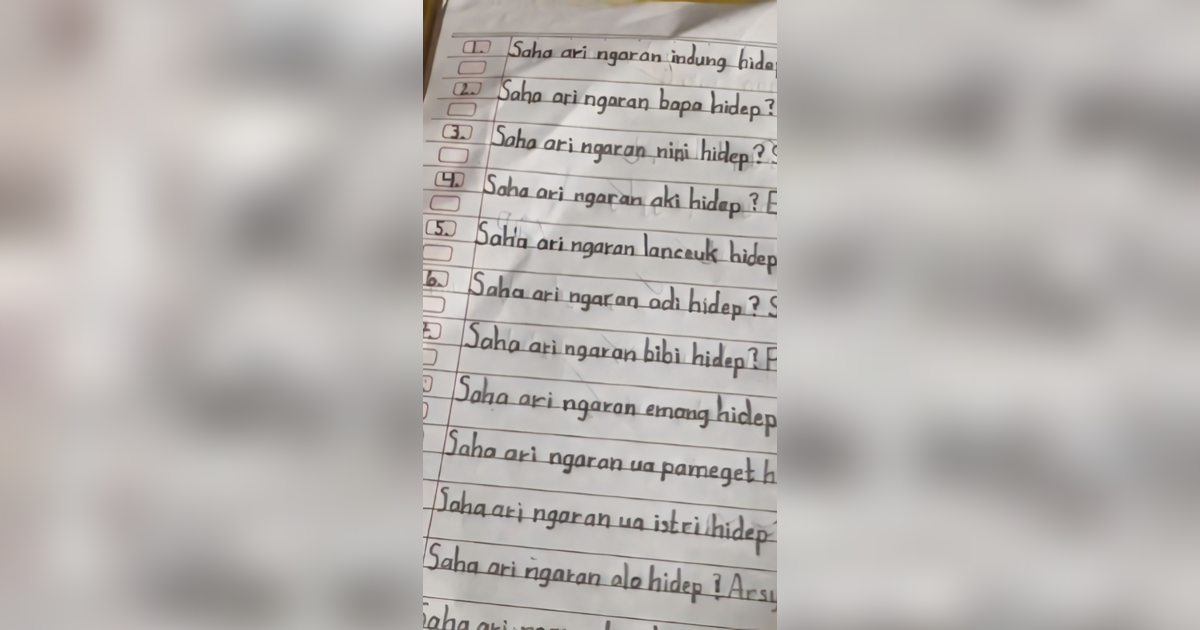 1. Saha ari ngaran indung hide
2. Saha ari ngaran bapa hidep?
3. Saha ari ngaran nini hidep? S
4. Saha ari ngaran aki hidep? E
5. Saha ari ngaran lanceuk hidep
6. Saha ari ngaran adi hidep? S
7. Saha ari ngaran bibi hidep?
Saha ari ngaran emang hidep
Saha ari ngaran ua pameget h
Saha ari ngaran ua istri hidep
Saha ari ngaran alo hidep? Arsy
Saha ari